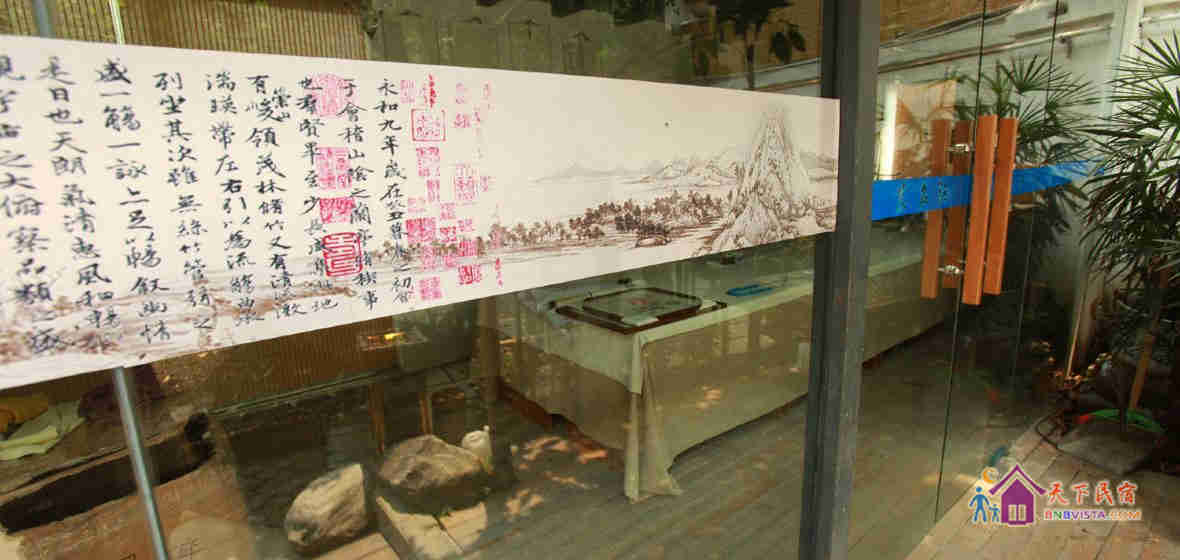 永和九年歲在癸丑暮春之初會
于會稽山陰之蘭亭脩禊事
也羣賢畢至少長咸集此地
有崇山峻領茂林脩竹又有清流激
湍暎帶左右引以為流觴曲
列坐其次雖無絲竹管弦之
盛一觴一詠亦足以暢敘幽情
是日也天朗氣清惠風和暢仰
觀宇宙之大俯察品類之盛
天下民宿
BNBVISTA.COM